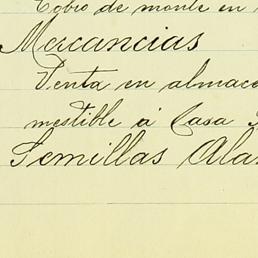 Cobro de monte en
Mercancias
Venta en almacé
mestible á Casa
Semillas Ala